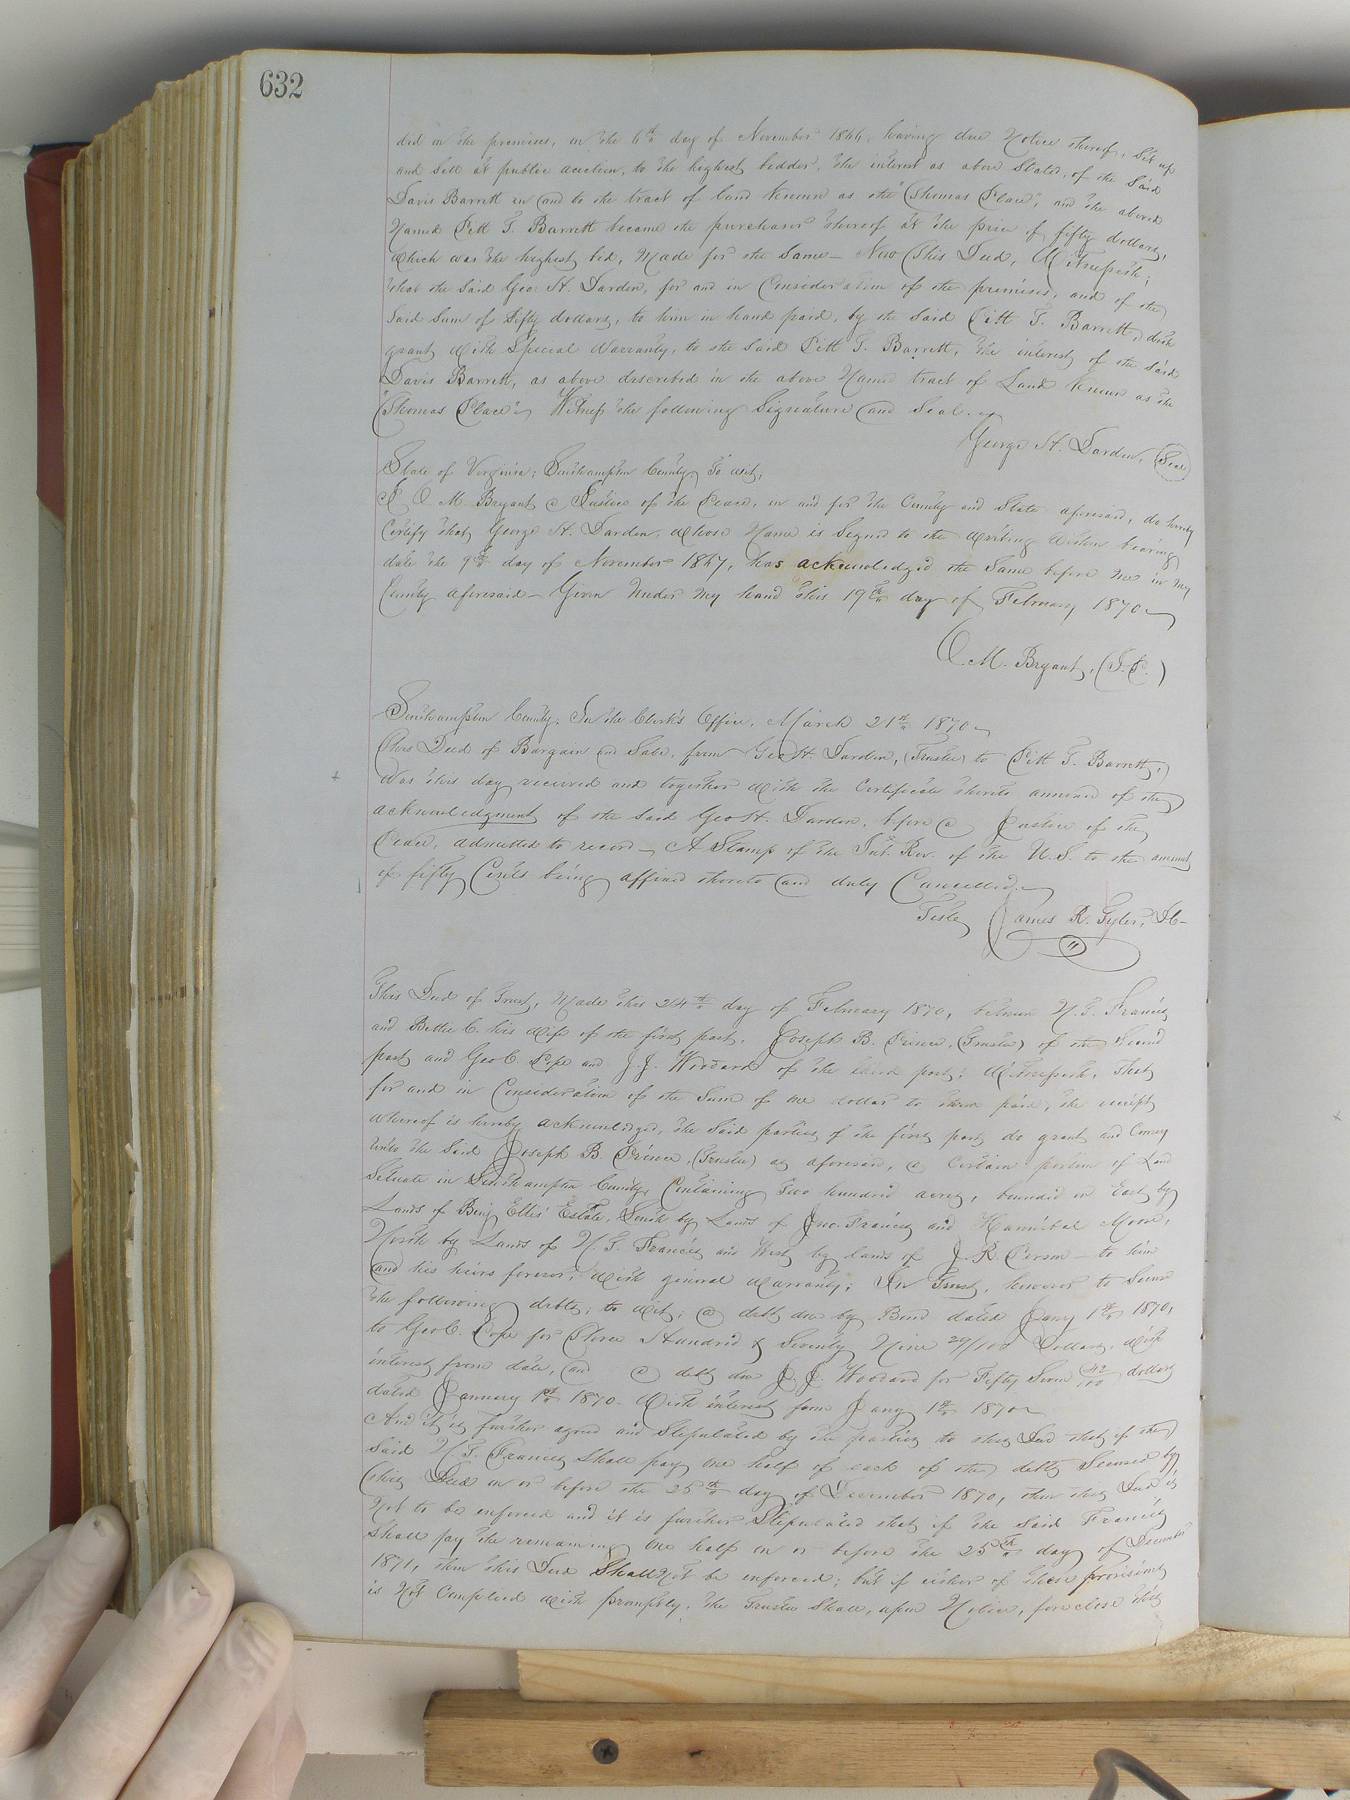 632
did on the premises, on the 6th day of November 1866, having due Notice thereof, Set up
and sell at public auction, to the highest bidder, the interest as above Stated, of the Said
Davis Barrett in and to the tract of land known as the "Thomas Place", and the above
Named Pitt T. Barrett became the purchaser thereof at the price of fifty dollars,
which was the highest bid, Made for the Same - Now This Deed, Witnesseth;
that the Said Geo: H. Darden, for and in Consideration of the premises, and of the
Said Sum of fifty dollars, to him in hand paid, by the Said Pitt T. Barrett, doth
grant with Special Warranty, to the Said Pitt T. Barrett, the interest of the Said
Davis Barrett, as above described in the above Named tract of Land known as the
"Thomas Place" - Witness the following Signature and Seal.
George H. Darden, (Seal)
State of Virginia; Southampton County, To wit,
I M. Bryant a Justice of the Peace, in and for the County and State aforesaid, do hereby
Certify that George H. Darden, whose Name is Signed to the writing within bearing
date the 9th day of November 1867, has acknowledged the Same before me in my
County aforesaid - Given Under My hand this 19th day of February 1870
M. Bryant, (J.P.)
Southampton County; In the Clerk's Office, March 21st 1870
This Deed of Bargain and Sale, from Geo H. Darden, (Trustee) to Pitt T. Barrett,
Was this day received and together with the Certificate thereto annexed of the
acknowledgment of the said Geo H. Darden, before a Justice of the
Peace, admitted to record - A Stamp of the Int. Rev. of the U.S. to the amount
of fifty Cents being affixed thereto and duly Cancelled.
Teste, James R. Tyler, D.C.
This Deed of Trust, Made this 24th day of February 1870, between N. T. Francis
and Bettie C. his wife of the first part, Joseph B. Prince, (Trustee) of the Second
part and Geo C. Pope and J. J. Woodard of the third part; Witnesseth, That
for and in Consideration of the Sum of one dollar to them paid, the receipt
whereof is hereby acknowledged, the Said parties of the first part do grant and Convey
Unto the Said Joseph B. Prince, (Trustee) as aforesaid, a Certain portion of Land
Situate in Southampton County, Containing Two hundred acres, bounded on East by
Lands of Benj Ellis' Estate, South by Lands of Jno. Francis and Hannibal Moore,
North by Lands of N. T. Francis and West by lands of J. R. Person - to him
and his heirs forever; with general Warranty; In Trust, however to Secure
the following debts; to wit; a debt due by Bond dated Jany 1st 1870,
to Geo C. Pope for Three Hundred & Seventy Nine 29/100 Dollars, with
interest from date, and a debt due J. J. Woodard for Fifty Seven 42/100 dollars
dated January 1st 1870. With interest from Jany 1st 1870
And it is further agreed and Stipulated by the parties to this Deed that if the
Said N. T. Francis Shall pay one half of each of the debts Secured by
this Deed on or before the 25th day of December 1870, then this Deed is
Not to be enforced and it is further Stipulated that if the Said Francis
Shall pay the remaining One half on or before the 25th day of December
1871, then this Deed Shall Not be enforced; but if either of these provisions
is Not Complied with promptly, the Trustee Shall, upon Notice, foreclose this